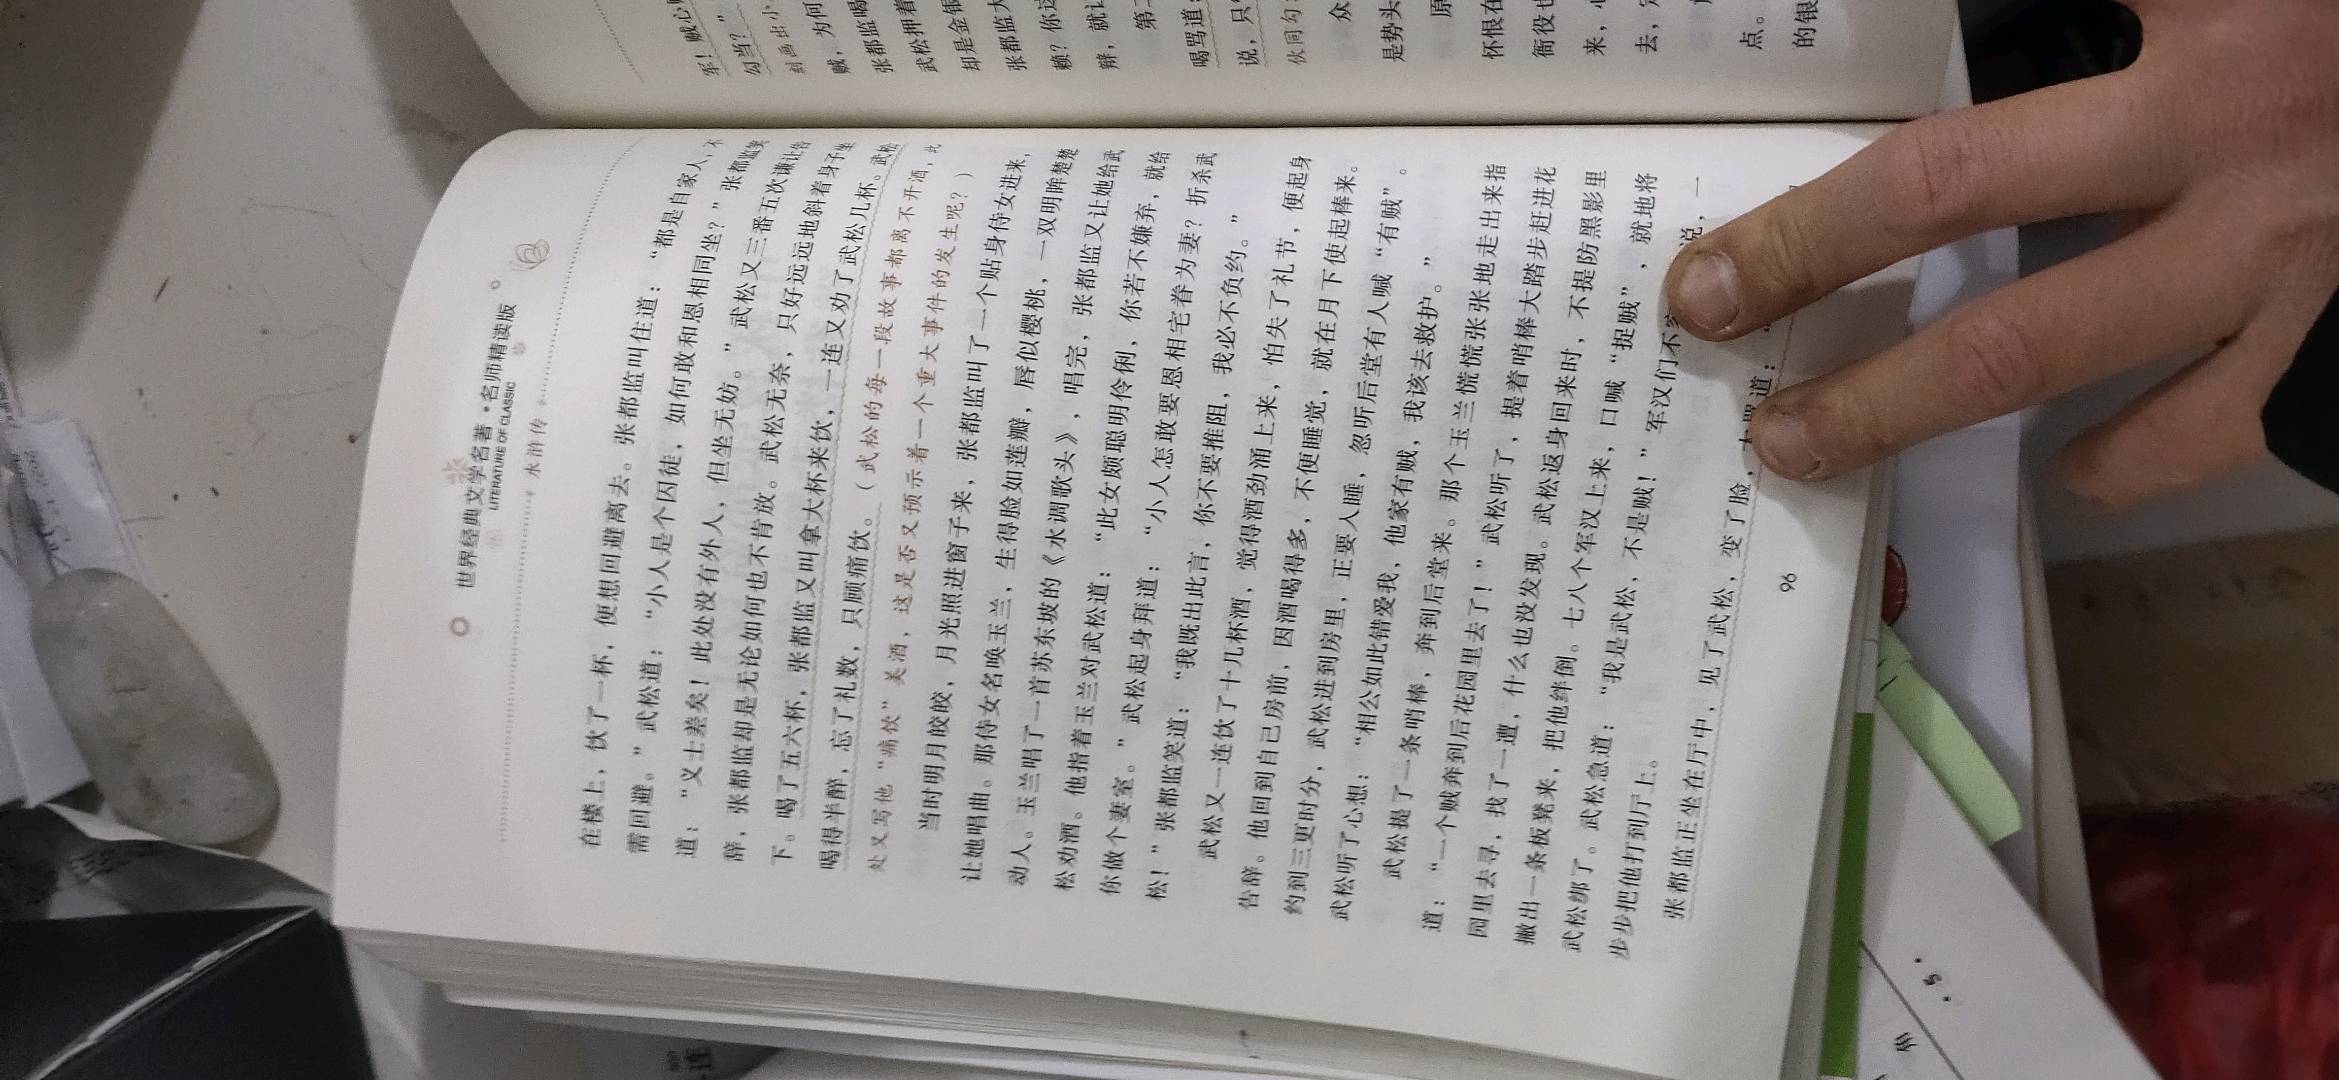 世界经典文学名著·名师精读版
LITERATURE OF CLASSIC
水浒传
在楼上，饮了一杯，便想回避离去。张都监叫住道：“都是自家人，不
需回避。”武松道：“小人是个囚徒，如何敢和恩相同坐？”张都监笑
道：“义士差矣！此处没有外人，但坐无妨。”武松又三番五次谦让告
辞，张都监却是无论如何也不肯放。武松无奈，只好远远地斜着身子坐
下。喝了五六杯，张都监又叫拿大杯来饮，一连又劝了武松几杯。武松
喝得半醉，忘了礼数，只顾痛饮。（武松的每一段故事都离不开酒，此
处又写他“痛饮”美酒，这是否又预示着一个重大事件的发生呢？）
当时明月皎皎，月光照进窗子来，张都监叫了一个贴身侍女进来，
让她唱曲。那侍女名唤玉兰，生得脸如莲瓣，唇似樱桃，一双明眸楚楚
动人。玉兰唱了一首苏东坡的《水调歌头》，唱完，张都监又让她给武
松劝酒。他指着玉兰对武松道：“此女颇聪明伶俐，你若不嫌弃，就给
你做个妻室。”武松起身拜道：“小人怎敢要恩相宅眷为妻？折杀武
松！”张都监笑道：“我既出此言，你不要推阻，我必不负约。”
武松又一连饮了十几杯酒，觉得酒劲涌上来，怕失了礼节，便起身
告辞。他回到自己房前，因酒喝得多，不便睡觉，就在月下使起棒来。
约到三更时分，武松进到房里，正要入睡，忽听后堂有人喊“有贼”。
武松听了心想：“相公如此错爱我，他家有贼，我该去救护。”
武松提了一条哨棒，奔到后堂来。那个玉兰慌慌张张地走出来指
道：“一个贼奔到后花园里去了！”武松听了，提着哨棒大踏步赶进花
园里去寻，找了一遭，什么也没发现。武松返身回来时，不提防黑影里
撇出一条板凳来，把他绊倒。七八个军汉上来，口喊“捉贼”，就地将
武松绑了。武松急道：“我是武松，不是贼！”军汉们不 说，一
步步把他打到厅上。
张都监正坐在厅中，见了武松，变了脸，大骂道：“
96
军！贼心
勾当？”
到画出小
贼，为何
张都监喝
武松押着
却是金银
张都监大
赖？你这
辩，就让
第二
喝骂道：
说，只
伙同勾
众
是势头
原
怀恨在
衙役也
来，心
去，
点。
的银
·5·